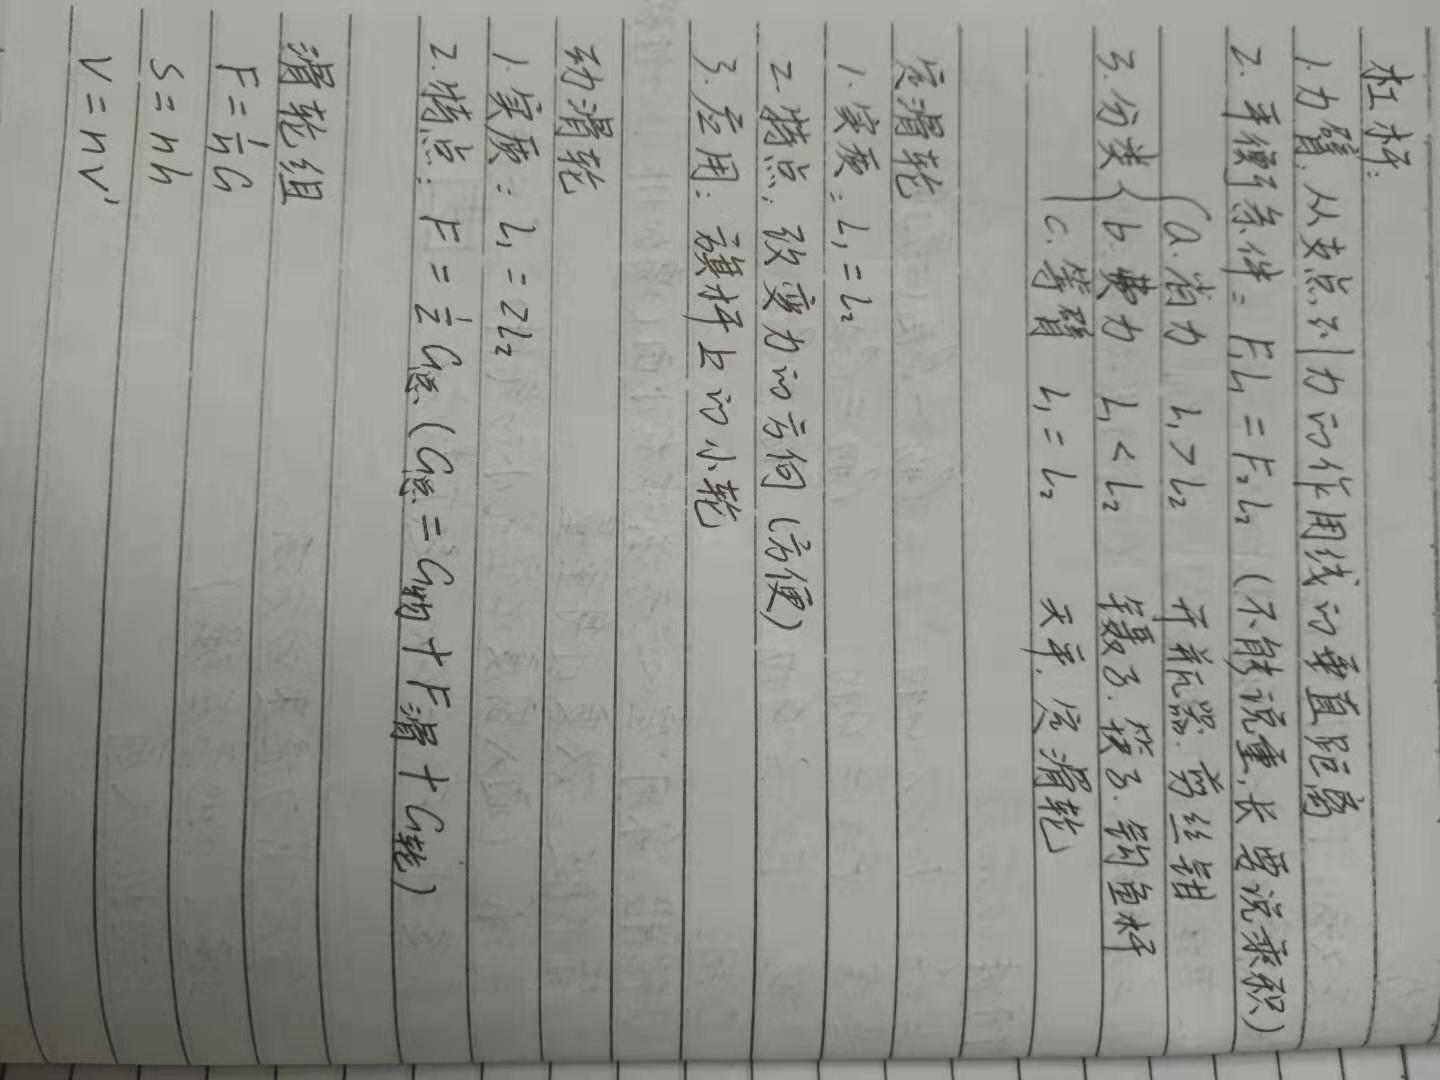 杠杆:
1.力臂:从支点到力的作用线的垂直距离
2.平衡条件:F₁L₁=F₂L₂(不能说重,长 要说乘积)
a.省力 L₁>L₂ 开瓶器.剪丝钳
3.分类{b.费力 L₁<L₂ 镊子.筷子.钓鱼杆
c.等臂 L₁=L₂ 天平.定滑轮
定滑轮
1.实质:L₁=L₂
2.特点:改变力的方向(方便)
3.应用:旗杆上的小轮
动滑轮
1.实质:L₁=2L₂
2.特点:F=1/2G总(G总=G物+F滑+G轮)
滑轮组
F=1/nG
S=nh
V=nV'